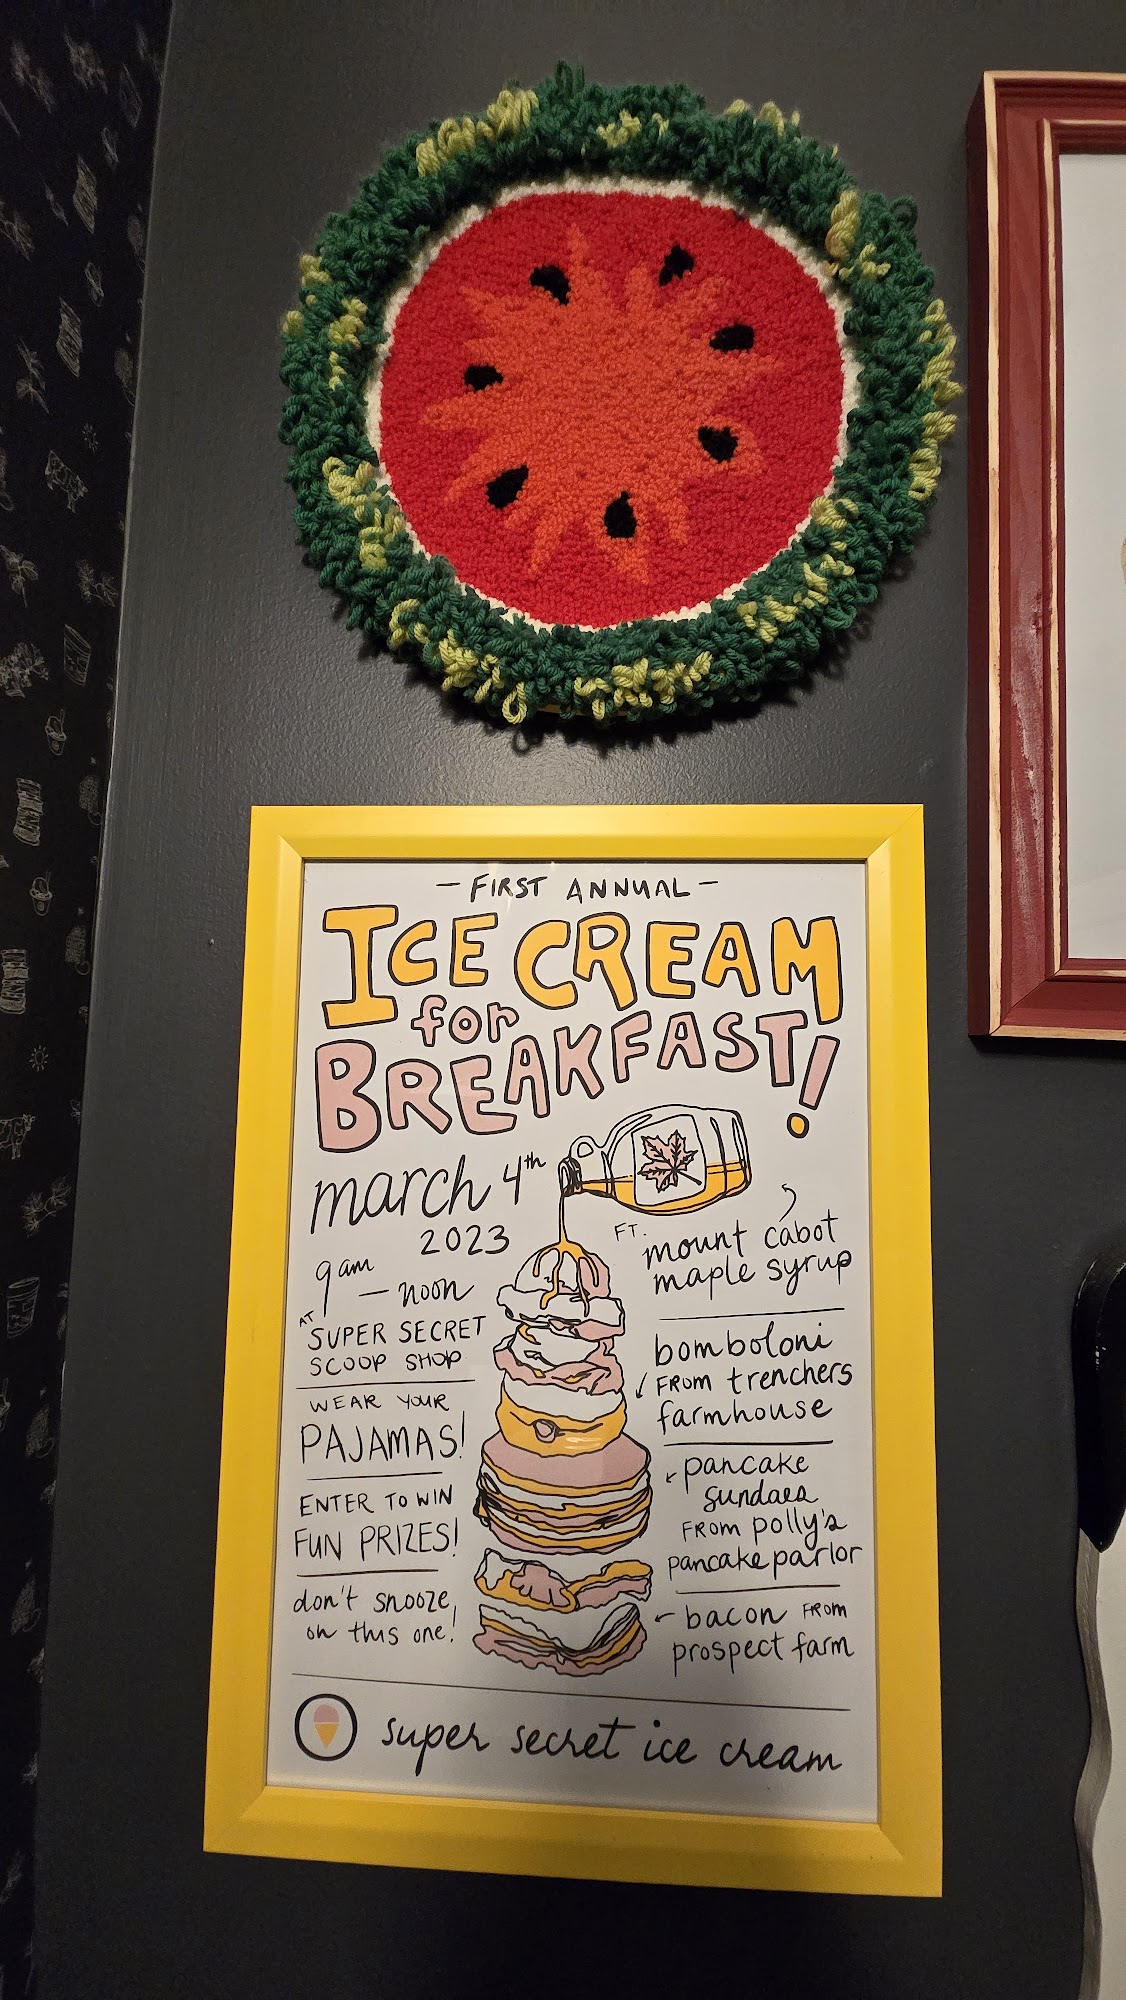 – FIRST ANNUAL –
ICE CREAM
for
BREAKFAST!
march 4th
2023
9am – noon
AT SUPER SECRET
SCOOP SHOP
WEAR YOUR
PAJAMAS!
ENTER TO WIN
FUN PRIZES!
don't snooze
on this one!
FT. mount cabot
maple syrup
bomboloni
FROM trenchers
farmhouse
pancake
sundaes
FROM polly's
pancake parlor
bacon FROM
prospect farm
super secret ice cream